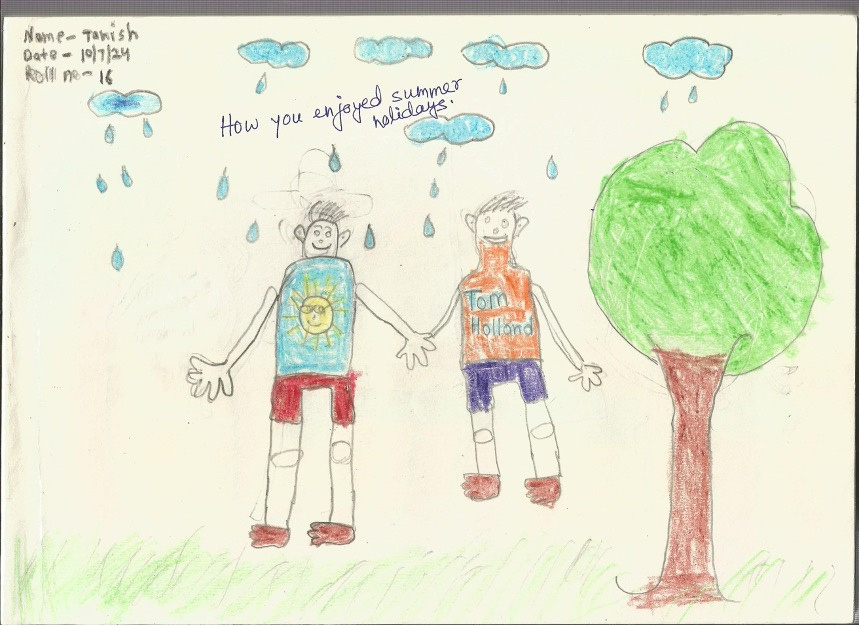 Name- Tanish
Date - 10/7/24
Roll no- 16
How you enjoyed summer
holidays.
Tom
Holland